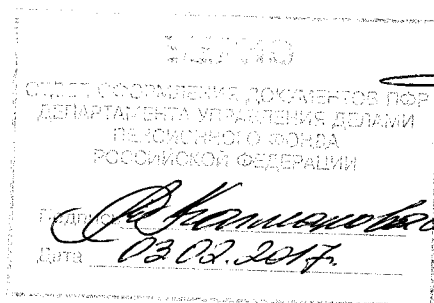 ОТДЕЛ ОФОРМЛЕНИЯ ДОКУМЕНТОВ ПФР
ДЕПАРТАМЕНТА УПРАВЛЕНИЯ ДЕЛАМИ
ПЕНСИОННОГО ФОНДА
РОССИЙСКОЙ ФЕДЕРАЦИИ
Подпись
Дата 03.02.2017г.